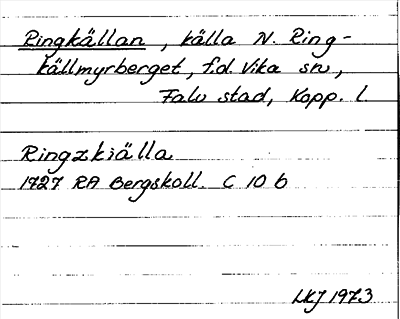 Ringkällan, källa N. Ring-
källmyrberget, f.d. Vika sn,
Falu stad, Kopp. l.
Ringzkiälla
1727 RA Bergskoll. C 10 b
LKJ 1973